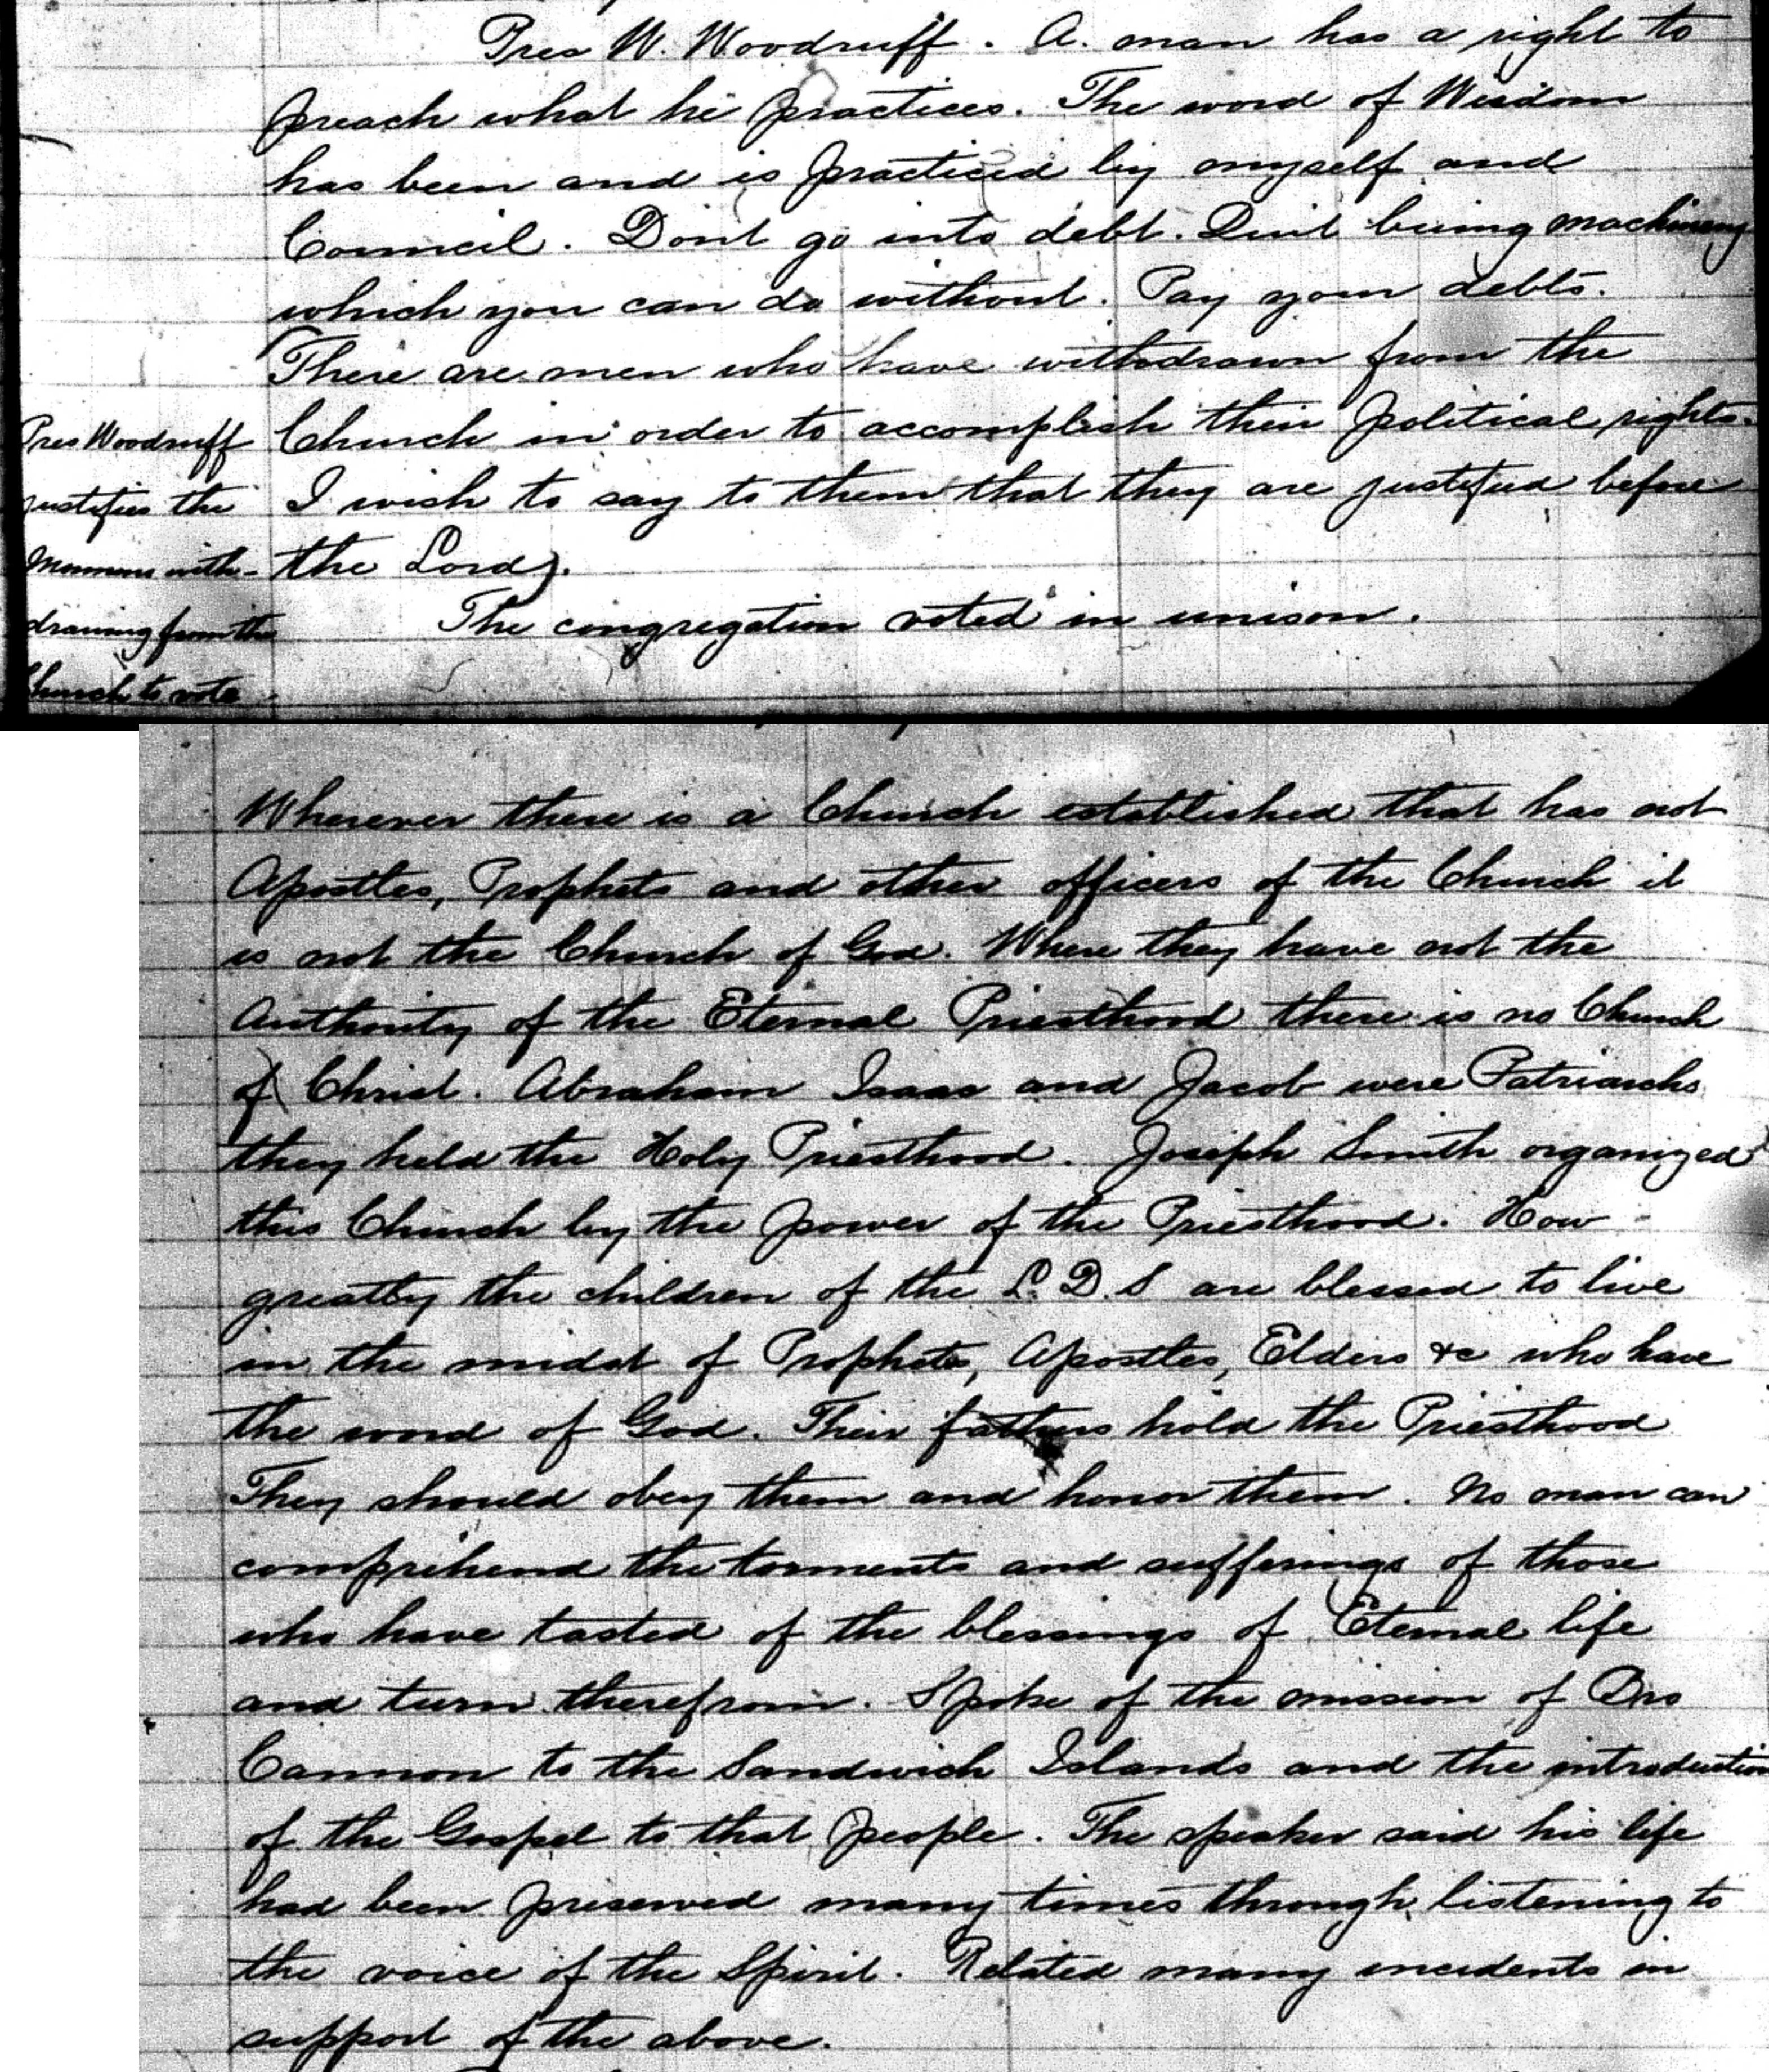 Pres W. Woodruff. A. man has a right to
preach what he practices. The word of Wisdom
has been and is practiced by myself and
Council. Dont go into debt. Quit buing machinery
which you can do without. Pay your debts.
There are men who have withdrawn from the
Church in order to accomplish their political rights.
I wish to say to them that they are justified before
the Lord).
The congregation voted in unison.
Pres Woodruff
justifies the
Mormons with-
drawing from the
Church to vote
Wherever there is a Church established that has not
Apostles, Prophets and other officers of the Church it
is not the Church of God. Where they have not the
Authority of the Eternal Priesthood there is no Church
of Christ. Abraham Isaac and Jacob were Patriarchs
they held the Holy Priesthood. Joseph Smith organized
this Church by the power of the Priesthood. How
greatly the children of the L.D.S are blessed to live
in the midst of Prophets, Apostles, Elders &c who have
the word of God. Their fathers hold the Priesthood
They should obey them and honor them. No man can
comprehend the torments and sufferings of those
who have tasted of the blessings of Eternal life
and turn therefrom. Spoke of the mission of Bro
Cannon to the Sandwich Islands and the introduction
of the Gospel to that people. The speaker said his life
had been preserved many times through listening to
the voice of the Spirit. Related many incidents in
support of the above.